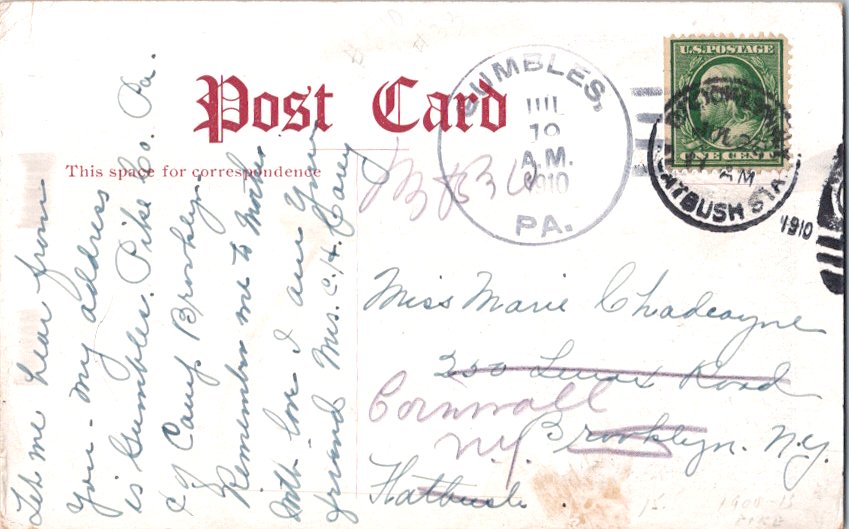 Post Card
This space for correspondence
Let me hear from
you - my address
is Gumbles. Pike Co. Pa.
c/o Camp Brooklyn.
Remember me to Mother
with love I am your
friend Mrs. C. H. Carey
GUMBLES,
JUL
19
A.M.
1910
PA.
U.S. POSTAGE
ONE CENT
AM
FLATBUSH STA.
1910
Miss Marie Chadeayne
250 Lenox Road
Cornwall
Brooklyn. N.Y.
N.Y.
Flatbush.
1908-13
PIKE